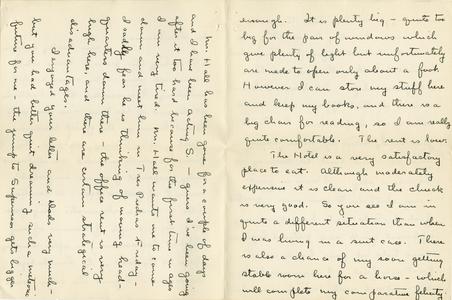 enough. It is plenty big – quite too
big for the pair of windows which
give plenty of light but unfortunately
are made to open only about a foot.
However I can store my stuff here
and keep my books, and there is a
big chair for reading, so I am really
quite comfortable. The rent is low.
The Hotel is a very satisfactory
place to eat. Although moderately
expensive it is clean and the chuck
is very good. So you see I am in
quite a different situation than when
I was living in a suit case. There
is also a chance of my soon getting
stable room here for a horse – which
will complete my comparative felicity.
Mr. Hall has been gone for a couple of days
and I have been acting S – guess I've been going
after it too hard because for the first time in ages
I am very tired. Mr Hall wants me to come
down and meet him in Tres Piedras Friday –
I sadly fear he is thinking of moving head-
quarters down there – the office rent is very
high here, and there are certain strategical
disadvantages.
I enjoyed your letter and Dads very much –
but you had better quit dreaming such a meteoric
future for me – the jump to Supervisor gets bigger